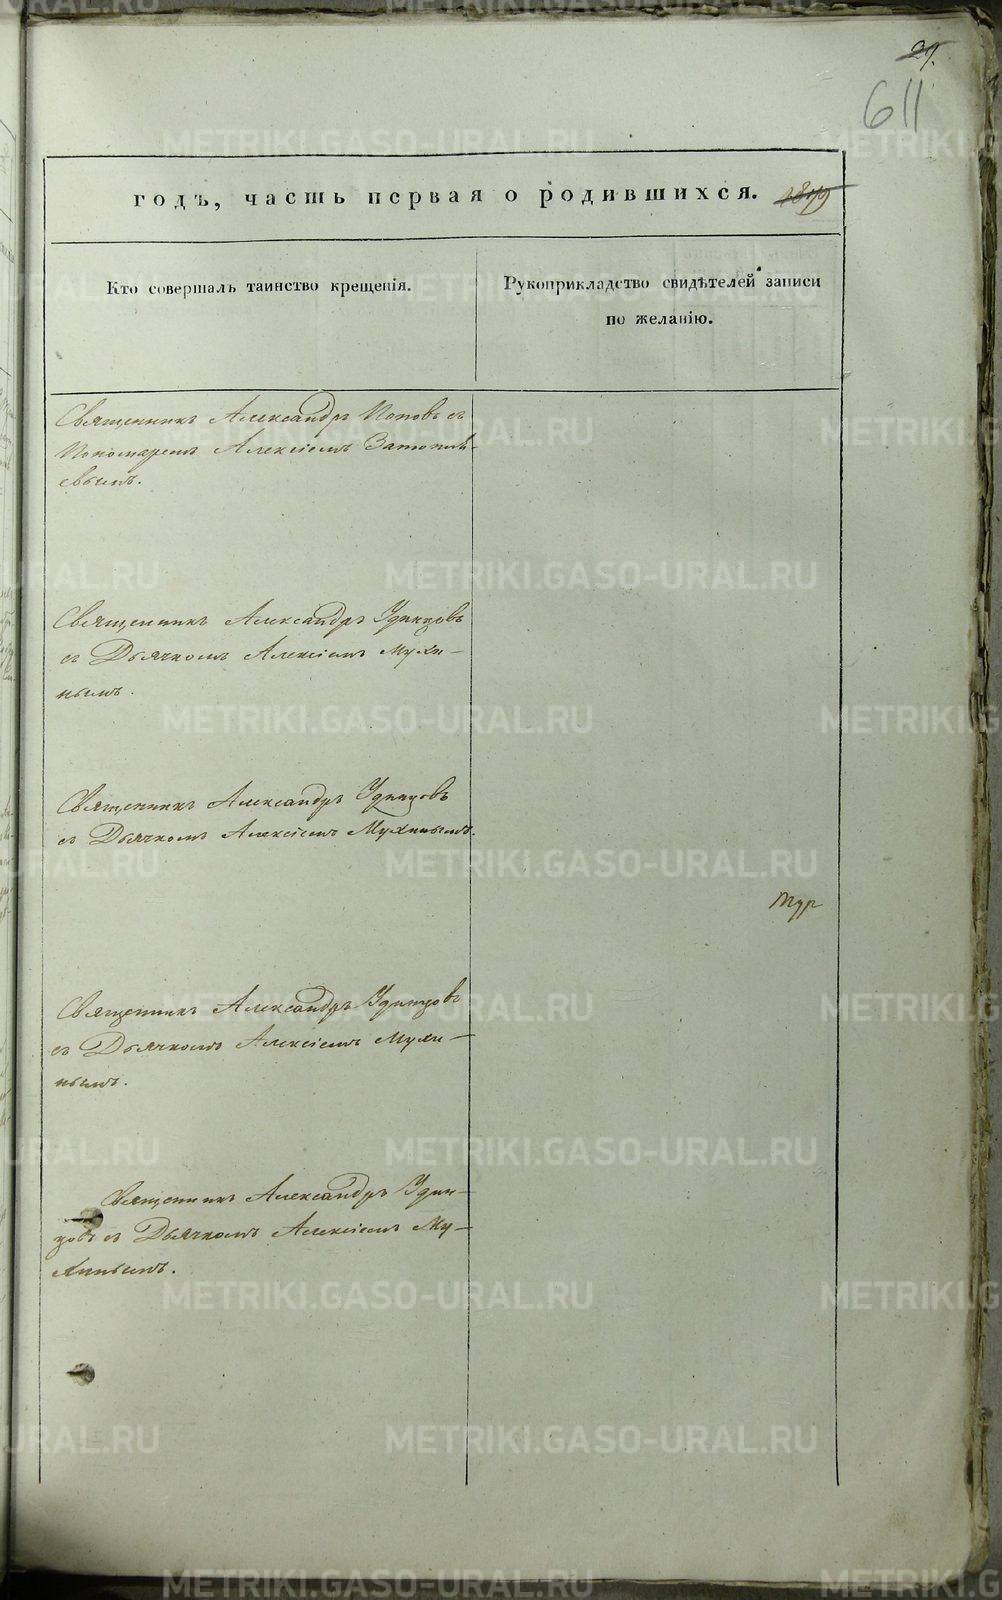 29.
611
годъ, часть первая о родившихся. 1849
Кто совершалъ таинство крещенія.
Рукоприкладство свидѣтелей записи
по желанію.
Священникъ Александръ Поповъ съ
Пономаремъ Алексіемъ Затопля-
евымъ.
Священникъ Александръ Удинцовъ
съ Дьячкомъ Алексіемъ Мухи-
нымъ.
Священникъ Александръ Удинцовъ
съ Дьячкомъ Алексіемъ Мухинымъ.
Священникъ Александръ Удинцовъ
съ Дьячкомъ Алексіемъ Мухи-
нымъ.
Священникъ Александръ Удин-
цовъ съ Дьячкомъ Алексіемъ Му-
хинымъ.
METRIKI.GASO-URAL.RU